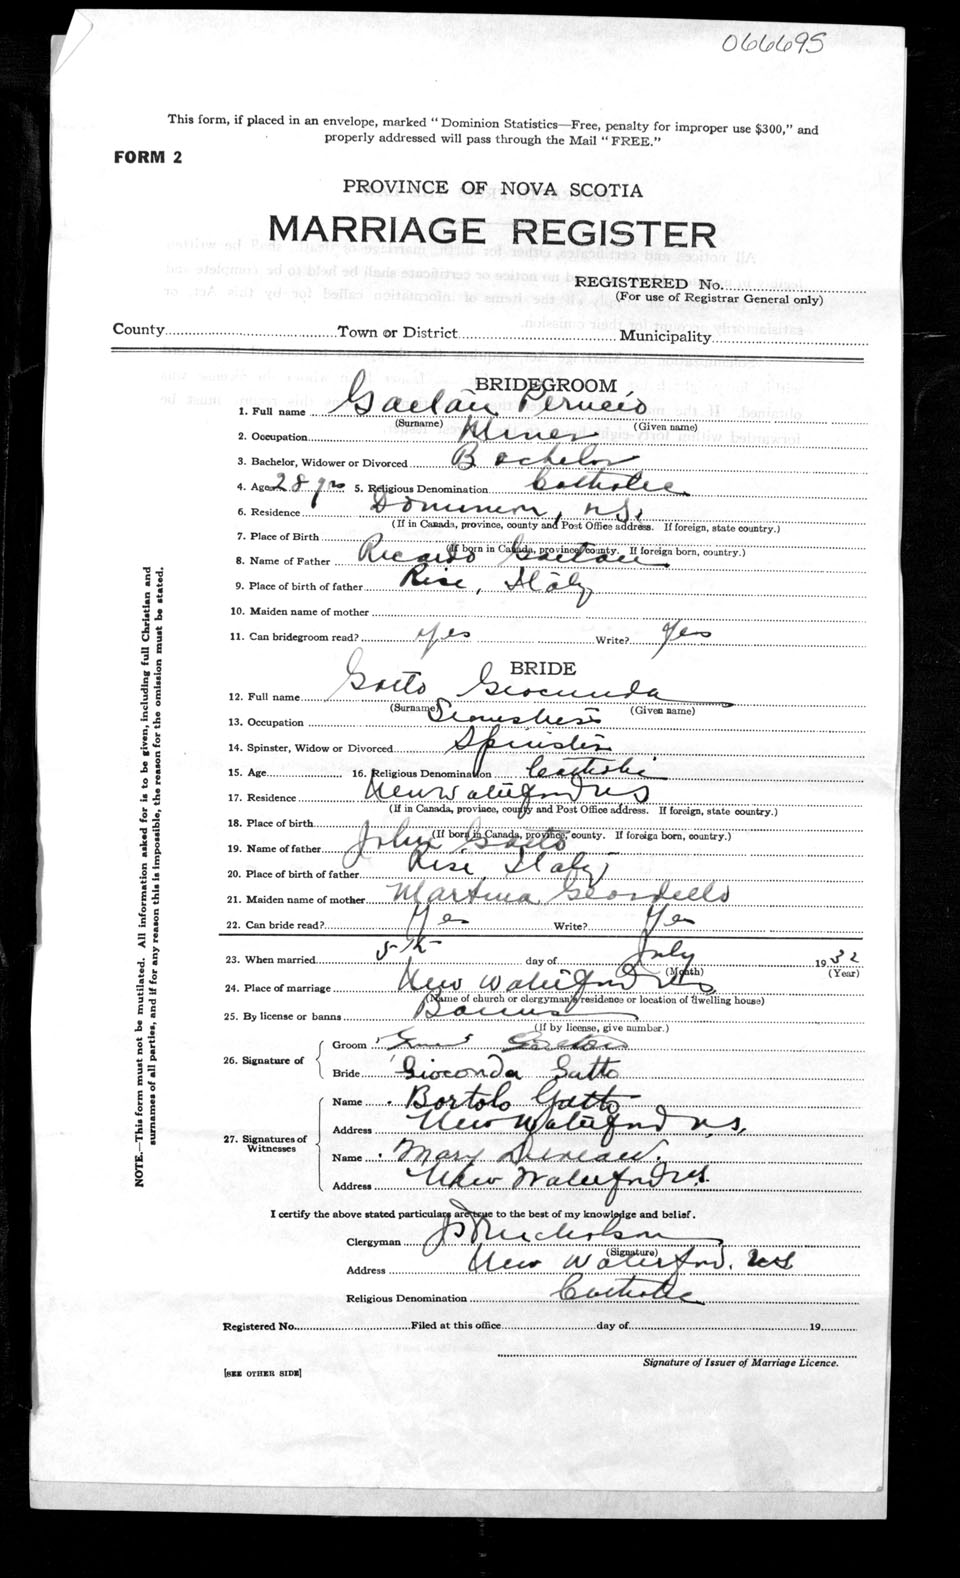 066695
This form, if placed in an envelope, marked "Dominion Statistics—Free, penalty for improper use $300," and
properly addressed will pass through the Mail "FREE."
FORM 2
PROVINCE OF NOVA SCOTIA
MARRIAGE REGISTER
REGISTERED No.
(For use of Registrar General only)
County Town or District Municipality
BRIDEGROOM
1. Full name Gaetan
(Surname) (Given name)
2. Occupation Miner
3. Bachelor, Widower or Divorced Bachelor
4. Age 28 yrs 5. Religious Denomination Catholic
6. Residence Dominion, N.S.
(If in Canada, province, county and Post Office address. If foreign, state country.)
7. Place of Birth
(If born in Canada, province, county. If foreign born, country.)
8. Name of Father Ricardo Gaetan
9. Place of birth of father Rise, Italy
10. Maiden name of mother
11. Can bridegroom read? Yes Write? Yes
BRIDE
12. Full name Gatto Gioconda
(Surname) (Given name)
13. Occupation
14. Spinster, Widow or Divorced Spinster
15. Age 16. Religious Denomination Catholic
17. Residence New Waterford NS
(If in Canada, province, county and Post Office address. If foreign, state country.)
18. Place of birth
(If born in Canada, province, county. If foreign born, country.)
19. Name of father John Gatto
20. Place of birth of father Rise, Italy
21. Maiden name of mother Martina
22. Can bride read? Yes Write? Yes
23. When married 5th day of July 1932
(Month) (Year)
24. Place of marriage New Waterford NS
(Name of church or clergyman's residence or location of dwelling house)
25. By license or banns Banns
(If by license, give number.)
26. Signature of
Groom Gaetan
Bride Gioconda Gatto
27. Signatures of Witnesses
Name Bortolo Gatto
Address New Waterford N.S.
Name Mary
Address New Waterford NS.
I certify the above stated particulars are true to the best of my knowledge and belief.
Clergyman Nicholson
(Signature)
Address New Waterford, NS
Religious Denomination Catholic
Registered No. Filed at this office day of 19
Signature of Issuer of Marriage Licence.
[SEE OTHER SIDE]
NOTE.—This form must not be mutilated. All information asked for is to be given, including full Christian and
surnames of all parties, and if for any reason this is impossible, the reason for the omission must be stated.